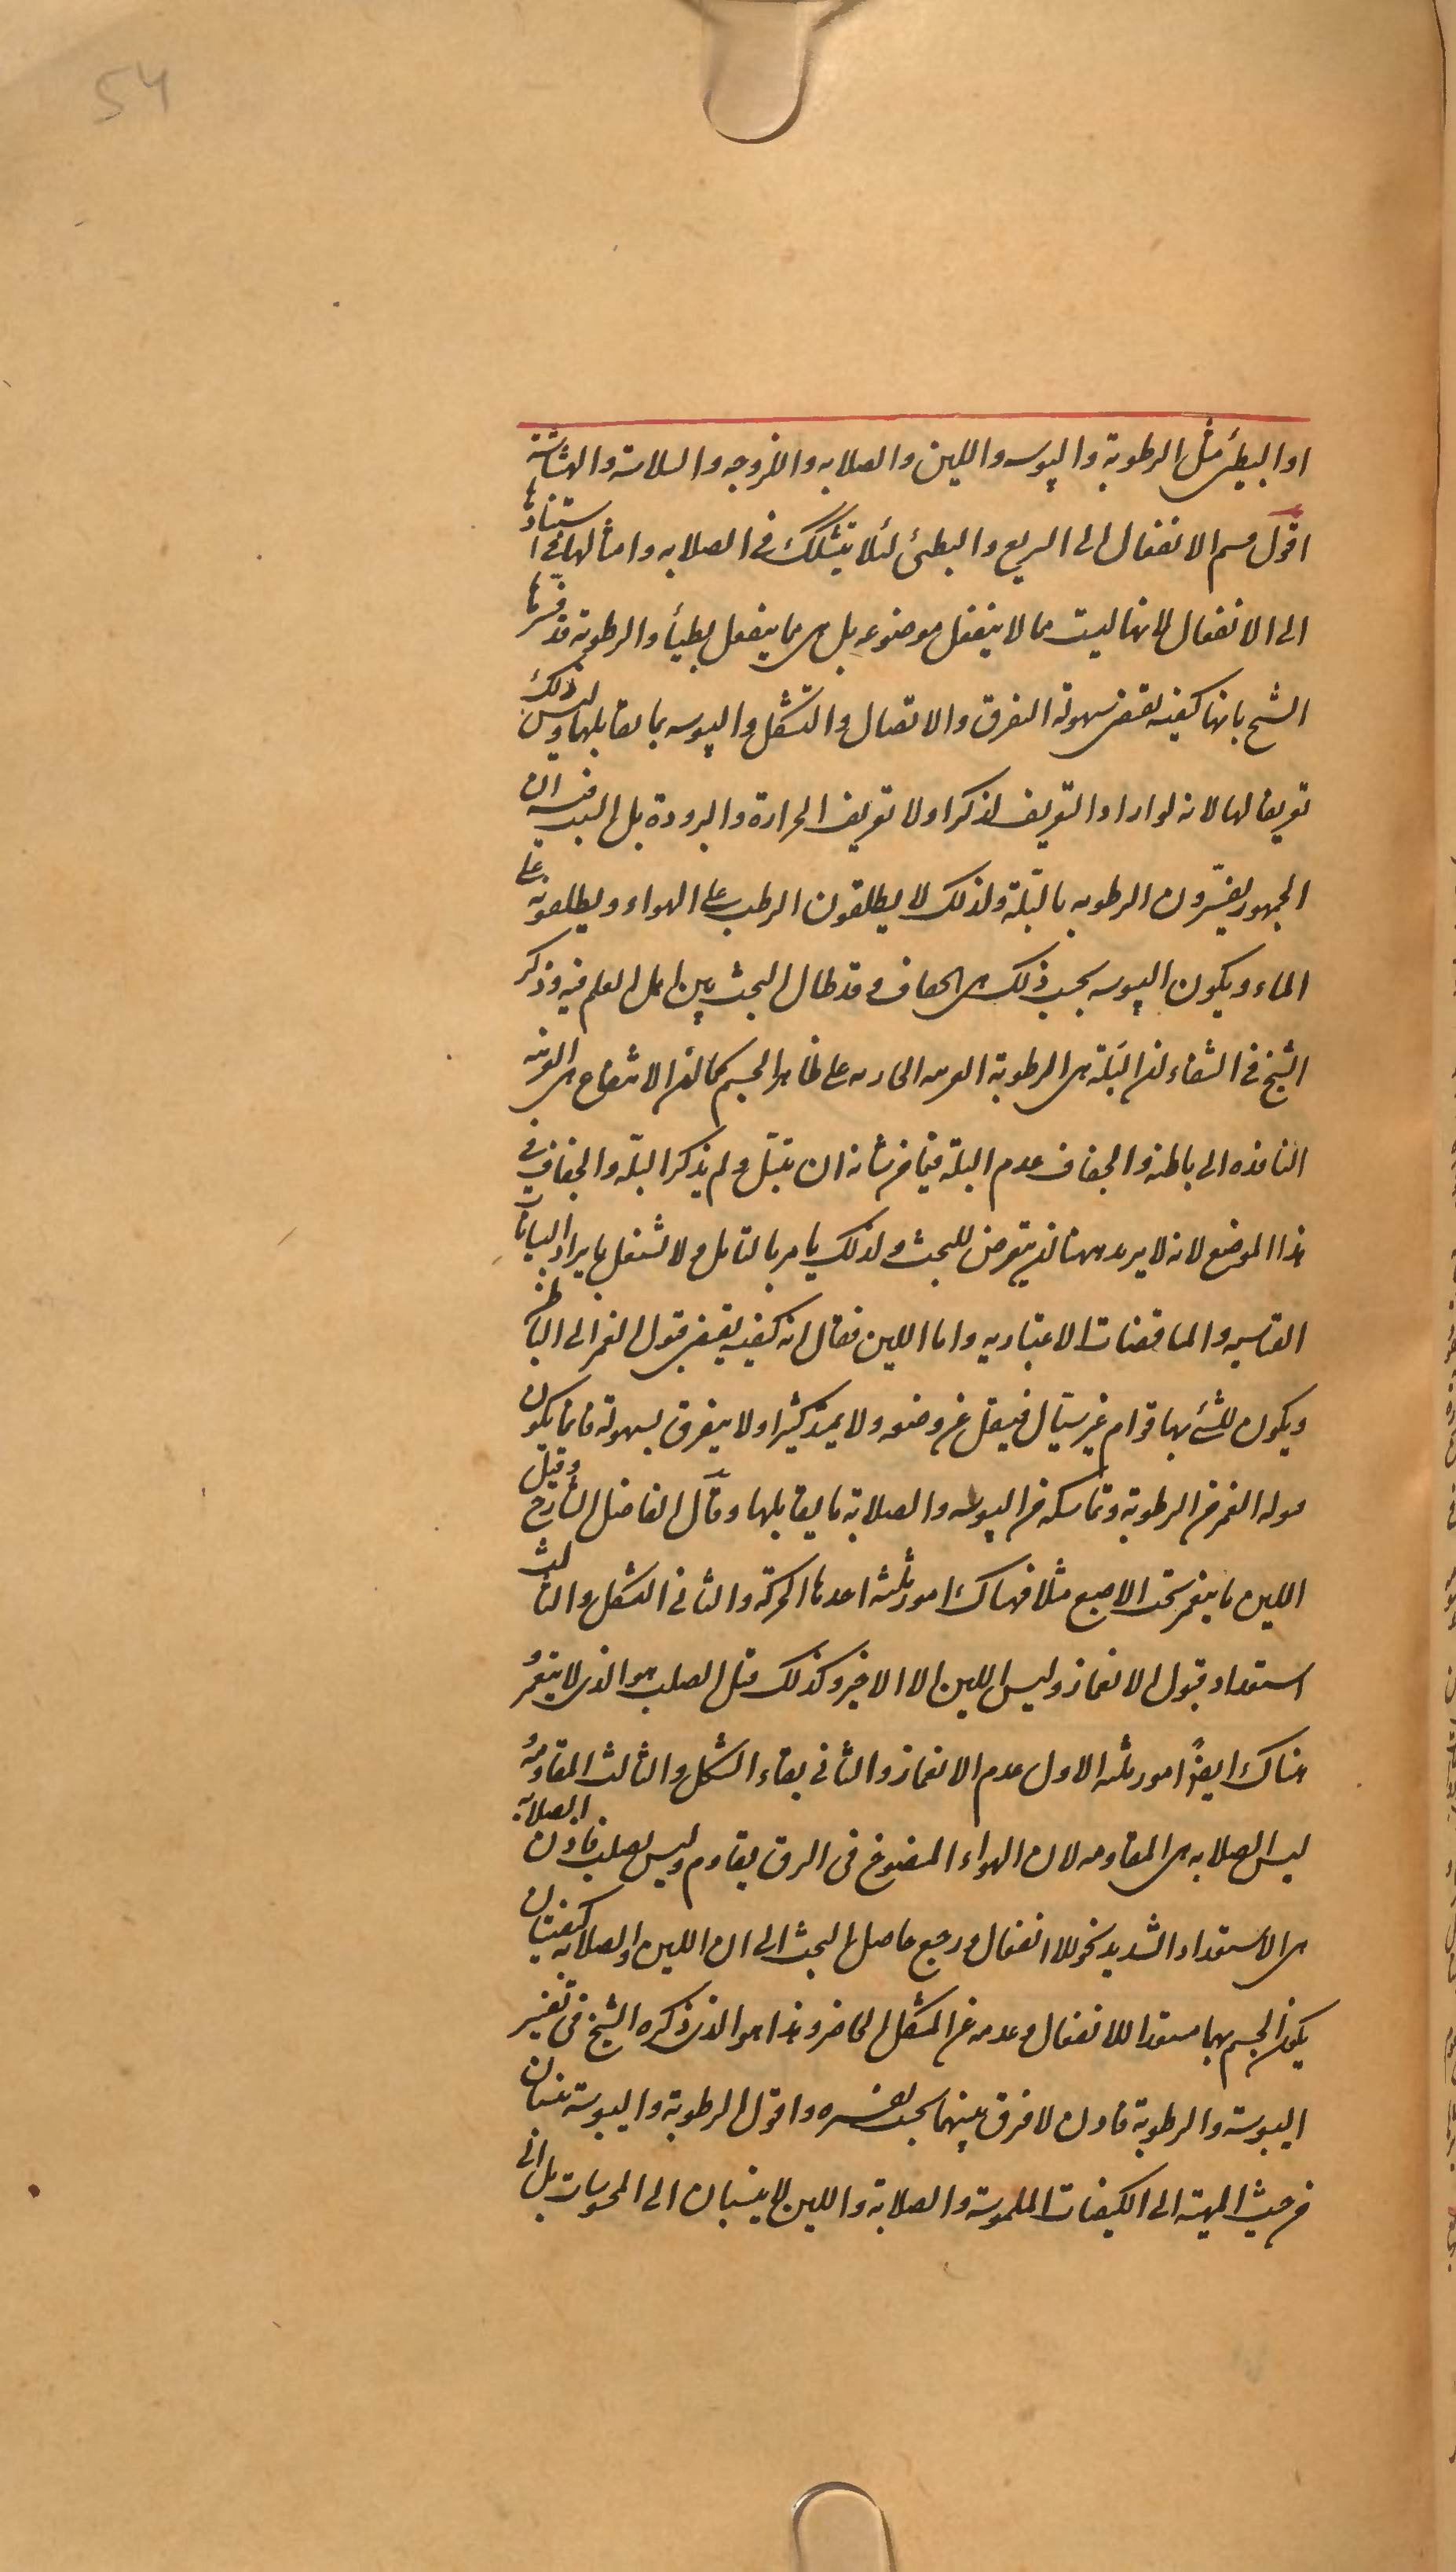 54
او البطيئ مثل الرطوبة واليبوسه واللين والصلابه واللزوجه والسلاسة والهشاشة
اقول قسم الانفعال الى السريع والبطئ لئلا يتشكك في الصلابه وامثالها في استنادها
الى الانفعال لانها ليست مما لا ينفعل موضوعه بل هى مما ينفعل بطيأ والرطوبة قد فسرها
الشيخ بانها كيفيه تقتضى سهولة التفرق والاتصال والتشكل واليبوسه بما يقابلها وليس ذلك
تعريفا لها لانه لو اراد التعريف لذكر اولا تعريف الحرارة والبرودة بل السبب فيه ان
الجمهور يفسّرون الرطوبه بالبّلة ولذلك لا يطلقون الرطب على الهواء ويطلقونه على
الماء ويكون اليبوسه بحسب ذلك هى الجفاف وقد طال البحث بين اهل العلم فيه وذكر
الشيخ في الشفاء ان البَلّة هى الرطوبة الغريبه الجاريه على ظاهر الجسم كما ان الانتقاع هى الغريبه
النافذه الى باطنه والجفاف عدم البلة فيما من شانه ان يبتلّ ولم يذكر البلّه والجفاف في
هذا الموضع لانه لا يريد ههنا ان يتعرض للبحث ولذلك يامر بالتامل ولا يشتغل بايراد البيانات
القياسيه والمناقضات الاعتباريه واما اللين فقال انه كيفيه يقتضى قبول الغمز الى الباطن
ويكون للشئ بها قوام غير سيّال فينتقل عن وضعه ولا يمتد كثيرا ولا يتفرق بسهولة فانما يكون
قبوله الغمز من الرطوبة وتماسكه من اليبوسه والصلابة ما يقابلها وقال الفاضل الشارح وقيل
اللين ما ينغمز تحت الاصبع مثلا فهناك امور ثلثه احدها الحركة والثانى الشكل والثالث
استعداد قبول الانغماز وليس اللين الا الاخير وكذلك قيل الصلب هو الذى لا ينغمز و
هناك ايضًا امور ثلثه الاول عدم الانغماز والثانى بقاء الشكل والثالث المقاومة و
ليس الصلابه هى المقاومه لان الهواء المنفوخ فى الزق يقاوم وليس بصلب فاذن الصلابة
هى الاستعداد الشديد نحو اللاانفعال ورجع حاصل البحث الى ان اللين والصلابه كيفيتان
يكون الجسم بهما مستعدا للانفعال وعدمه عن الشكل الحاضر وهذا هو الذى ذكره الشيخ فى تفسير
اليبوسة والرطوبة فاذن لا فرق بينهما بحسب تفسيره واقول الرطوبة واليبوسة ينسبان
من حيث المهية الى الكيفيات الملموسة والصلابة واللين لا ينسبان الى المحسوسات بل الى